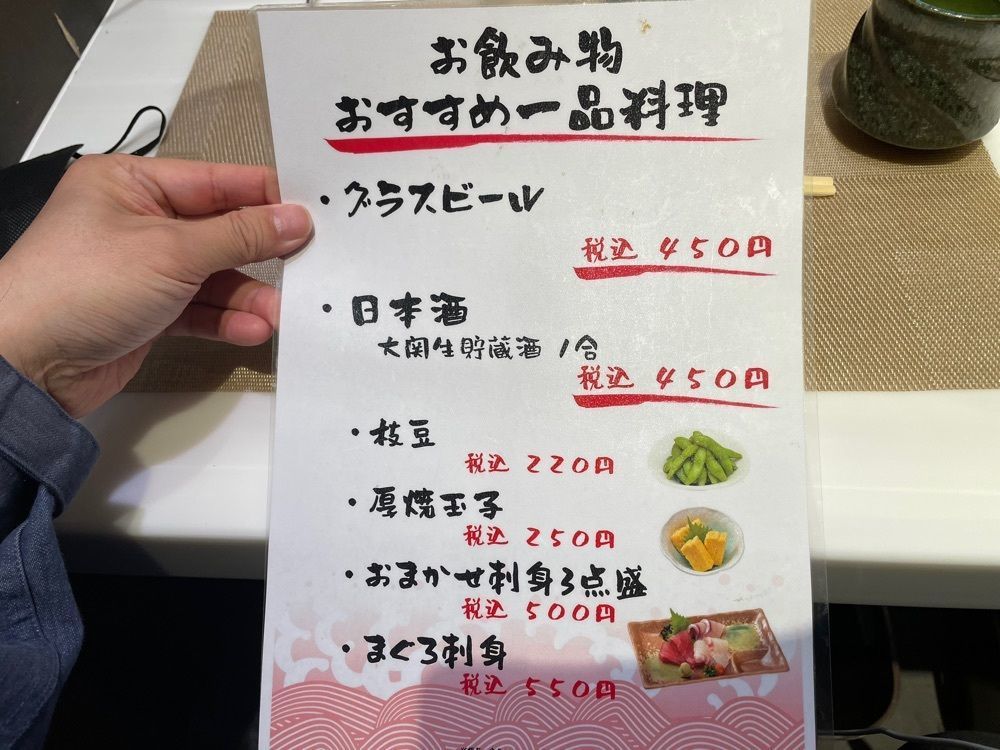 お飲み物
おすすめ一品料理
・グラスビール
税込 450円
・日本酒
大関生貯蔵酒 1合
税込 450円
・枝豆
税込 220円
・厚焼玉子
税込 250円
・おまかせ刺身3点盛
税込 500円
・まぐろ刺身
税込 550円